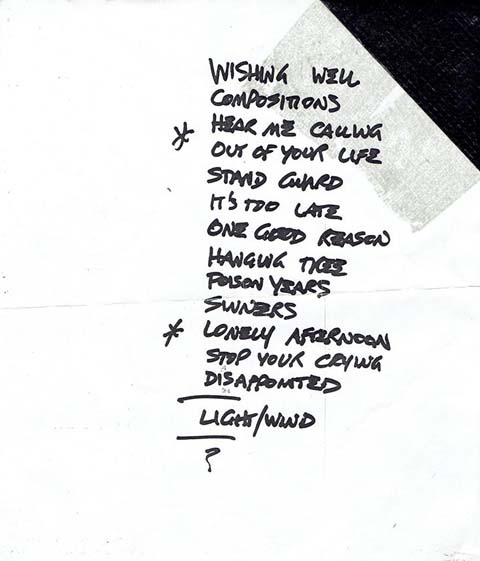 WISHING WELL
COMPOSITIONS
* HEAR ME CALLING
OUT OF YOUR LIFE
STAND GUARD
IT'S TOO LATE
ONE GOOD REASON
HANGING TREE
POISON YEARS
SINNERS
* LONELY AFTERNOON
STOP YOUR CRYING
DISAPPOINTED
LIGHT/WIND
?